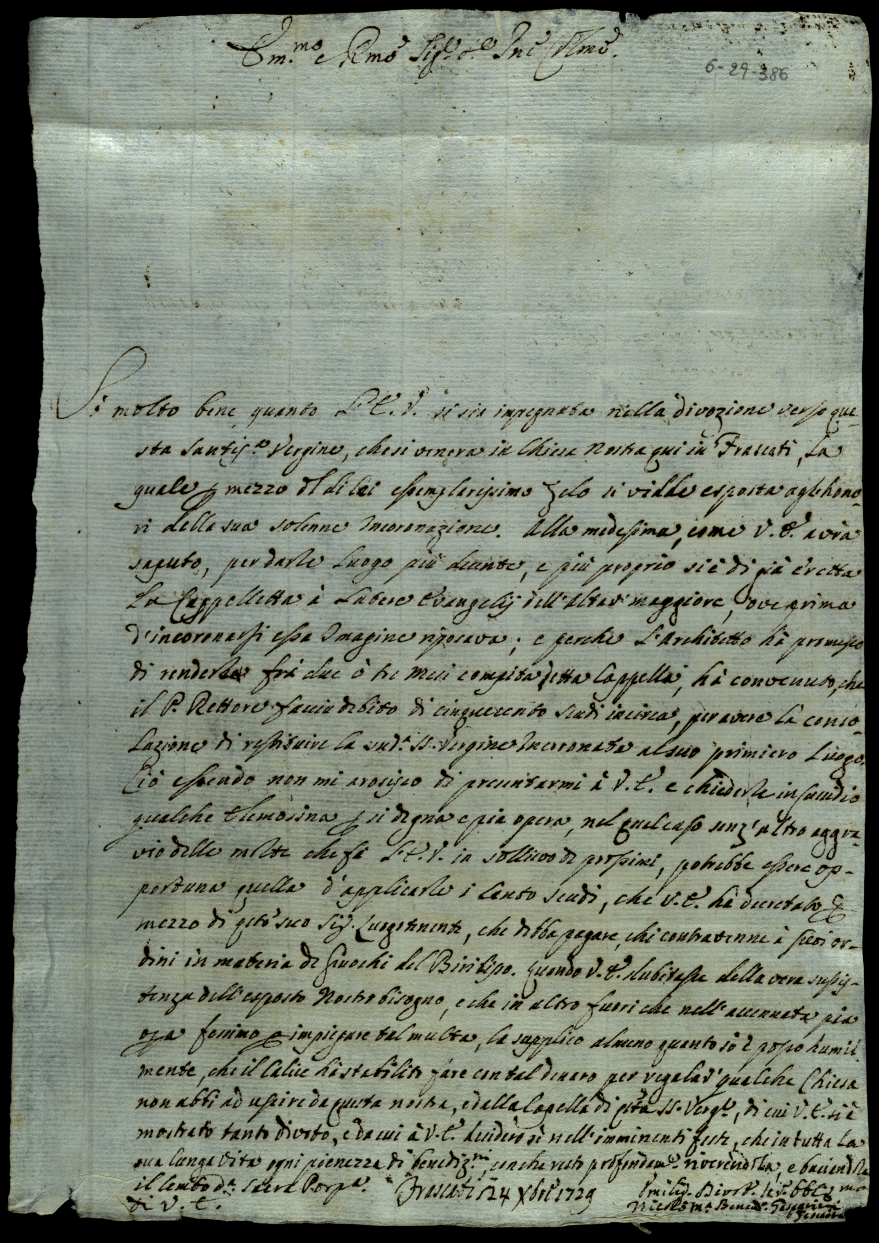 Em.mo e Rmo Sig.e
6-29-386
So molto bene quanto l'E.V. si sia inpegnata nella divozione verso que-
sta Santis.a Vergine, che si venera in Chiesa Nostra qui in Frascati, la
quale p mezzo di lei essemplarissimo zelo si vidde esposta agl'hono-
ri della sua solenne Incoronazione. Alla medesima, come V.E. avrà
saputo, per darle luogo più decente, e più proprio si è di già eretta
la Cappelletta à Latere Evangelij dell'altar maggiore, ove prima
d'incoronarsi essa Imagine riposava; e perche l'Architetto hà promesso
di renderle frà due ò tre mesi compita detta Cappella, hà convenuto, che
il P. Rettore faccia debito di cinquecento scudi incirca, per avere la conso-
lazione di restituire la sud.a SS. Vergine Incoronata al suo primiero luogo.
Ciò essendo non mi arosisco di presentarmi à V.E. e chiederle in sussidio
qualche elemosina p si degna e pia opera, nel qual caso senz'altro aggra-
vio delle molte che fà l'E.V. in sollievo de prossimi, potrebbe essere op-
portuna quella d'applicarle i cento scudi, che V.E. hà decretato p
mezzo di q.sto suo Sig. Luogotenente, che debba pagare, chi contravenne à suoi or-
dini in materia di Giuochi del Biribisso. Quando V.E. dubitasse della vera sussis-
tenza dell'esposto Nostro bisogno, e che in altro fuori che nell'accennata pia
opa fossimo p impiegare tal multa, la supplico almeno quanto sò e posso humil-
mente, che il Calice hà stabilito fare con tal denaro per regalar qualche Chiesa
non abbi ad uscire da questa nostra, e dalla Capella di q.sta SS. Verg.e, di cui V.E. si è
mostrato tanto divoto, e da cui à V.E. desidero sì nell'imminenti feste, che in tutta la
sua lunga vita ogni pienezza di benediz.ni, con che resto profondam.e riverendola, e baciandole
il lembo d.a Sacra Porp.a Frascati 24 Xbre 1729
di V.E.